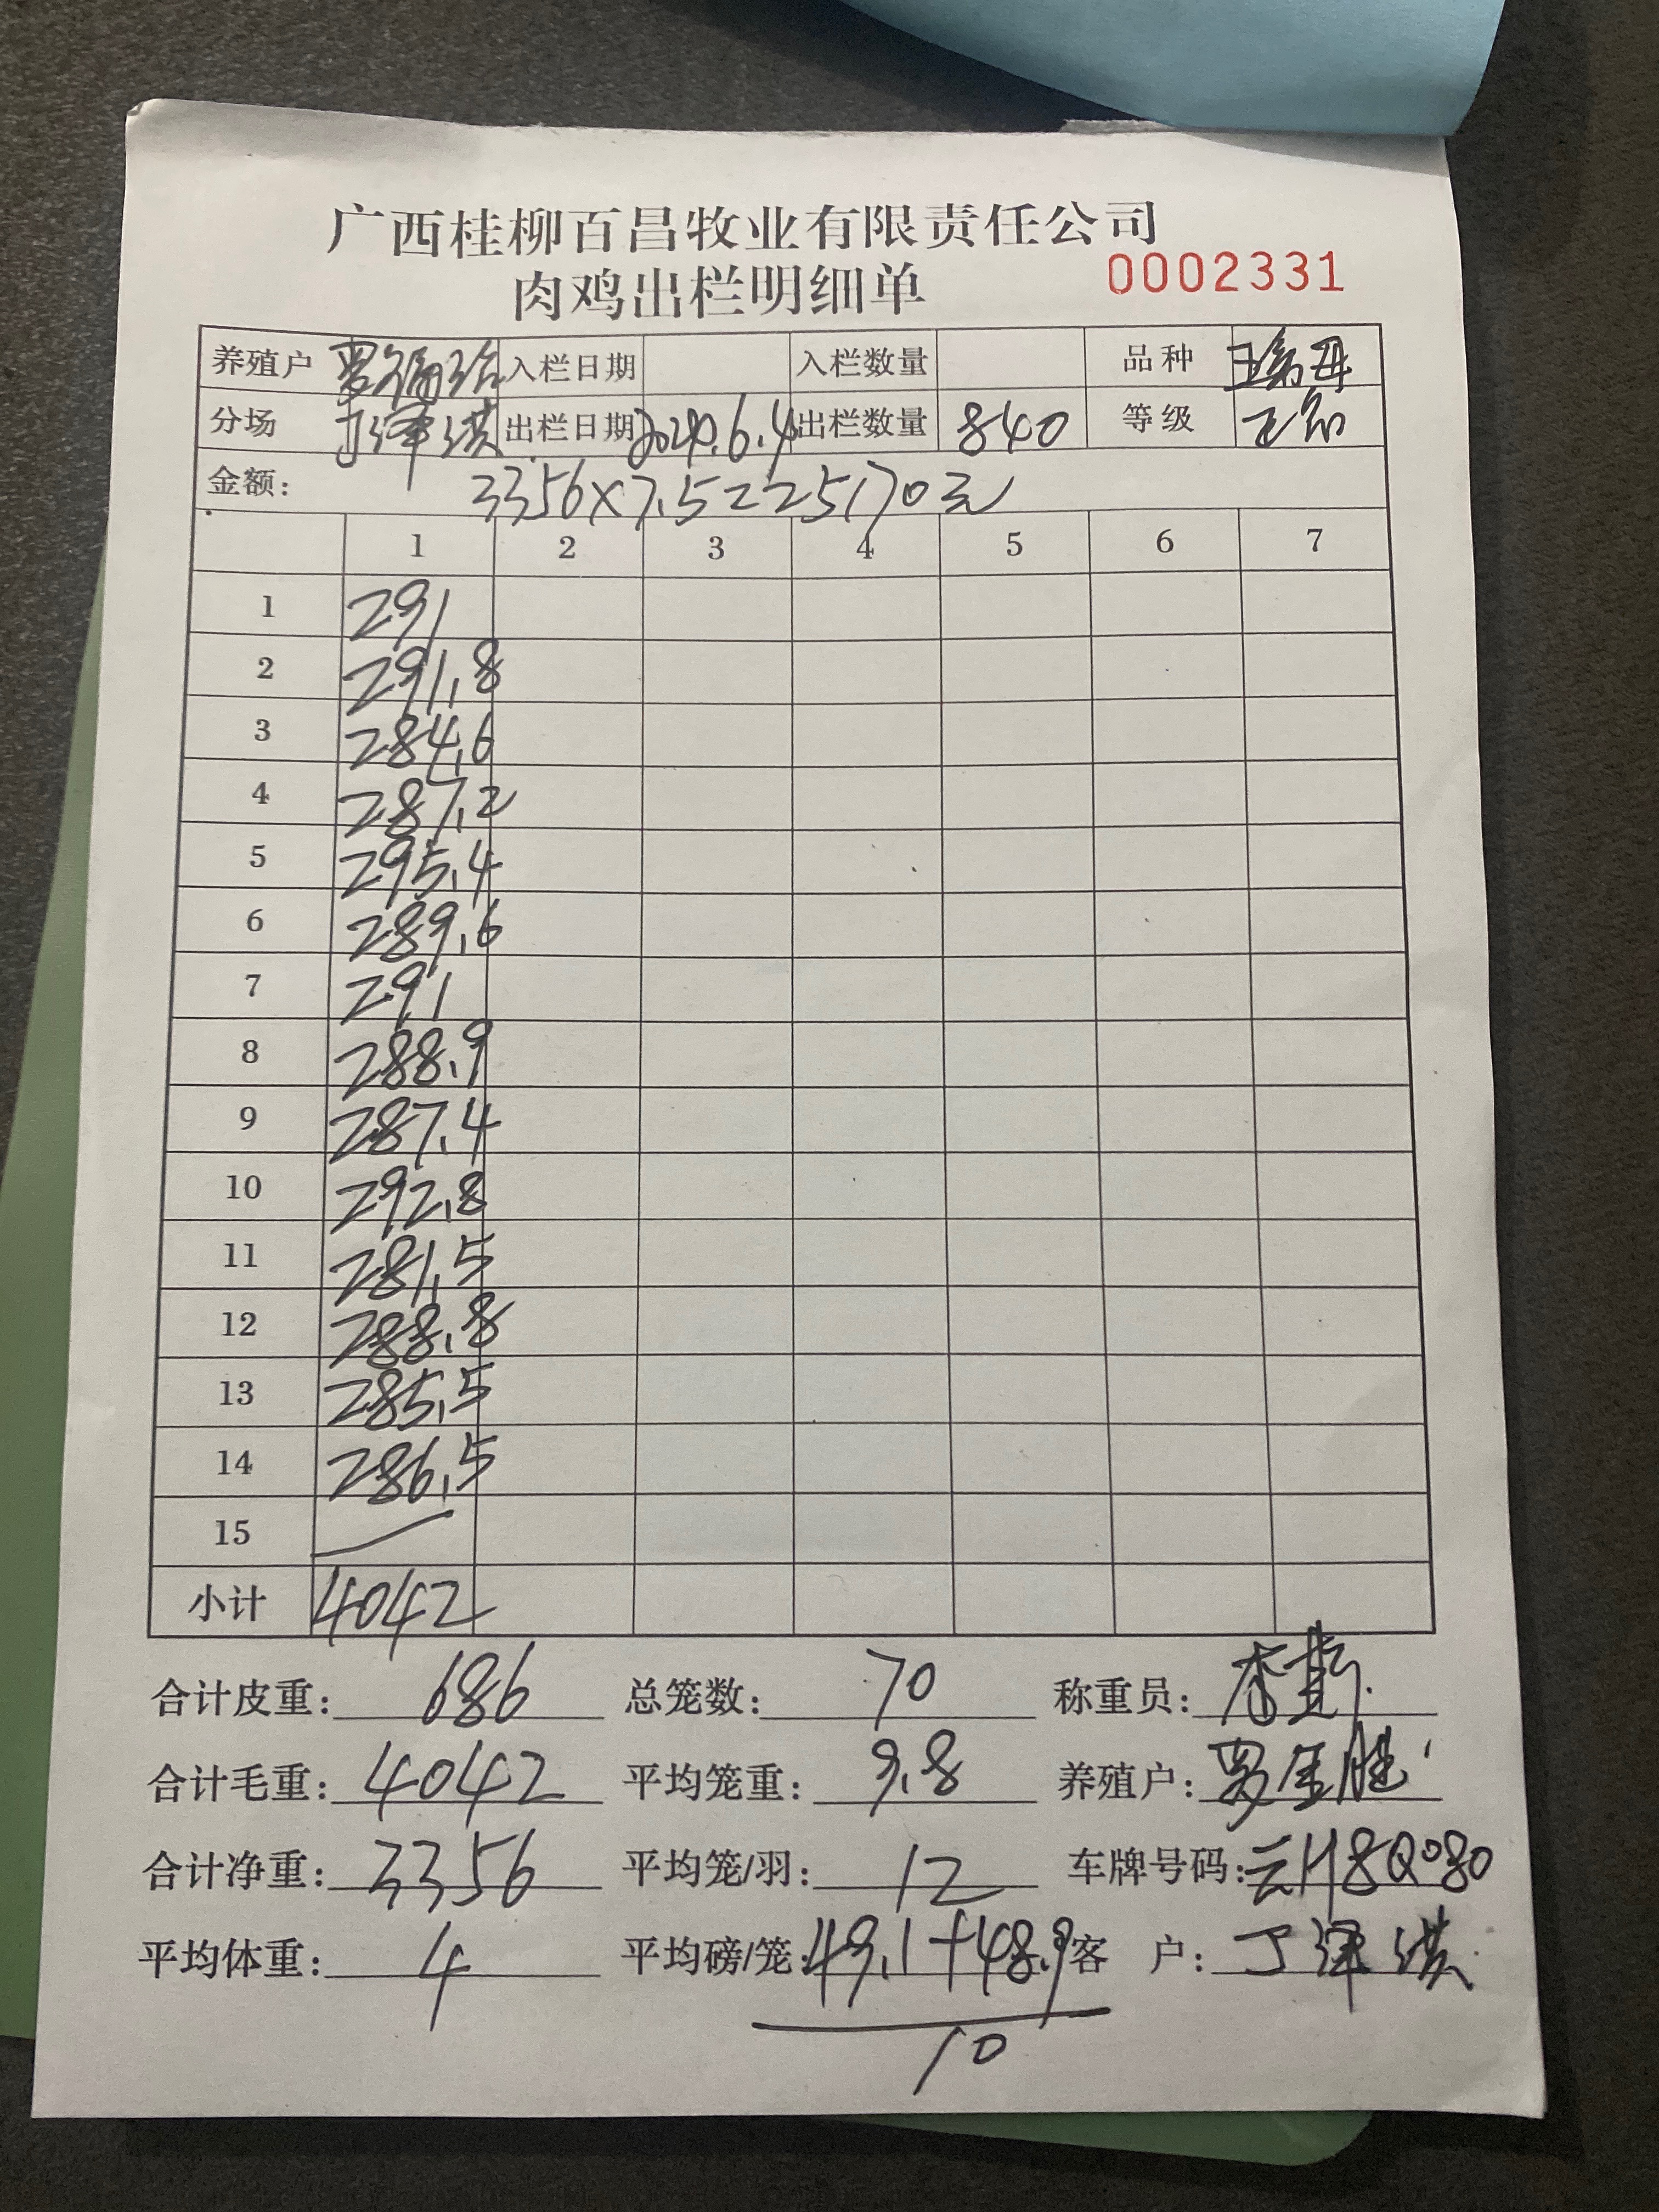 广西桂柳百昌牧业有限责任公司
肉鸡出栏明细单 0002331
养殖户 罗 入栏日期 入栏数量 品种
分场 丁泽洪 出栏日期 2024.6.4 出栏数量 840 等级 正品
金额: 3356×7.5=25170元
1 2 3 4 5 6 7
1 291
2 291.8
3 284.6
4 287.2
5 295.4
6 289.6
7 291
8 288.9
9 287.4
10 292.8
11 281.5
12 288.8
13 285.5
14 286.5
15
小计 4042
合计皮重: 686 总笼数: 70 称重员: 李
合计毛重: 4042 平均笼重: 9.8 养殖户: 罗
合计净重: 3356 平均笼/羽: 12 车牌号码: 云H8Q080
平均体重: 4 平均磅/笼: 49.1+48.9 客户: 丁泽洪
10